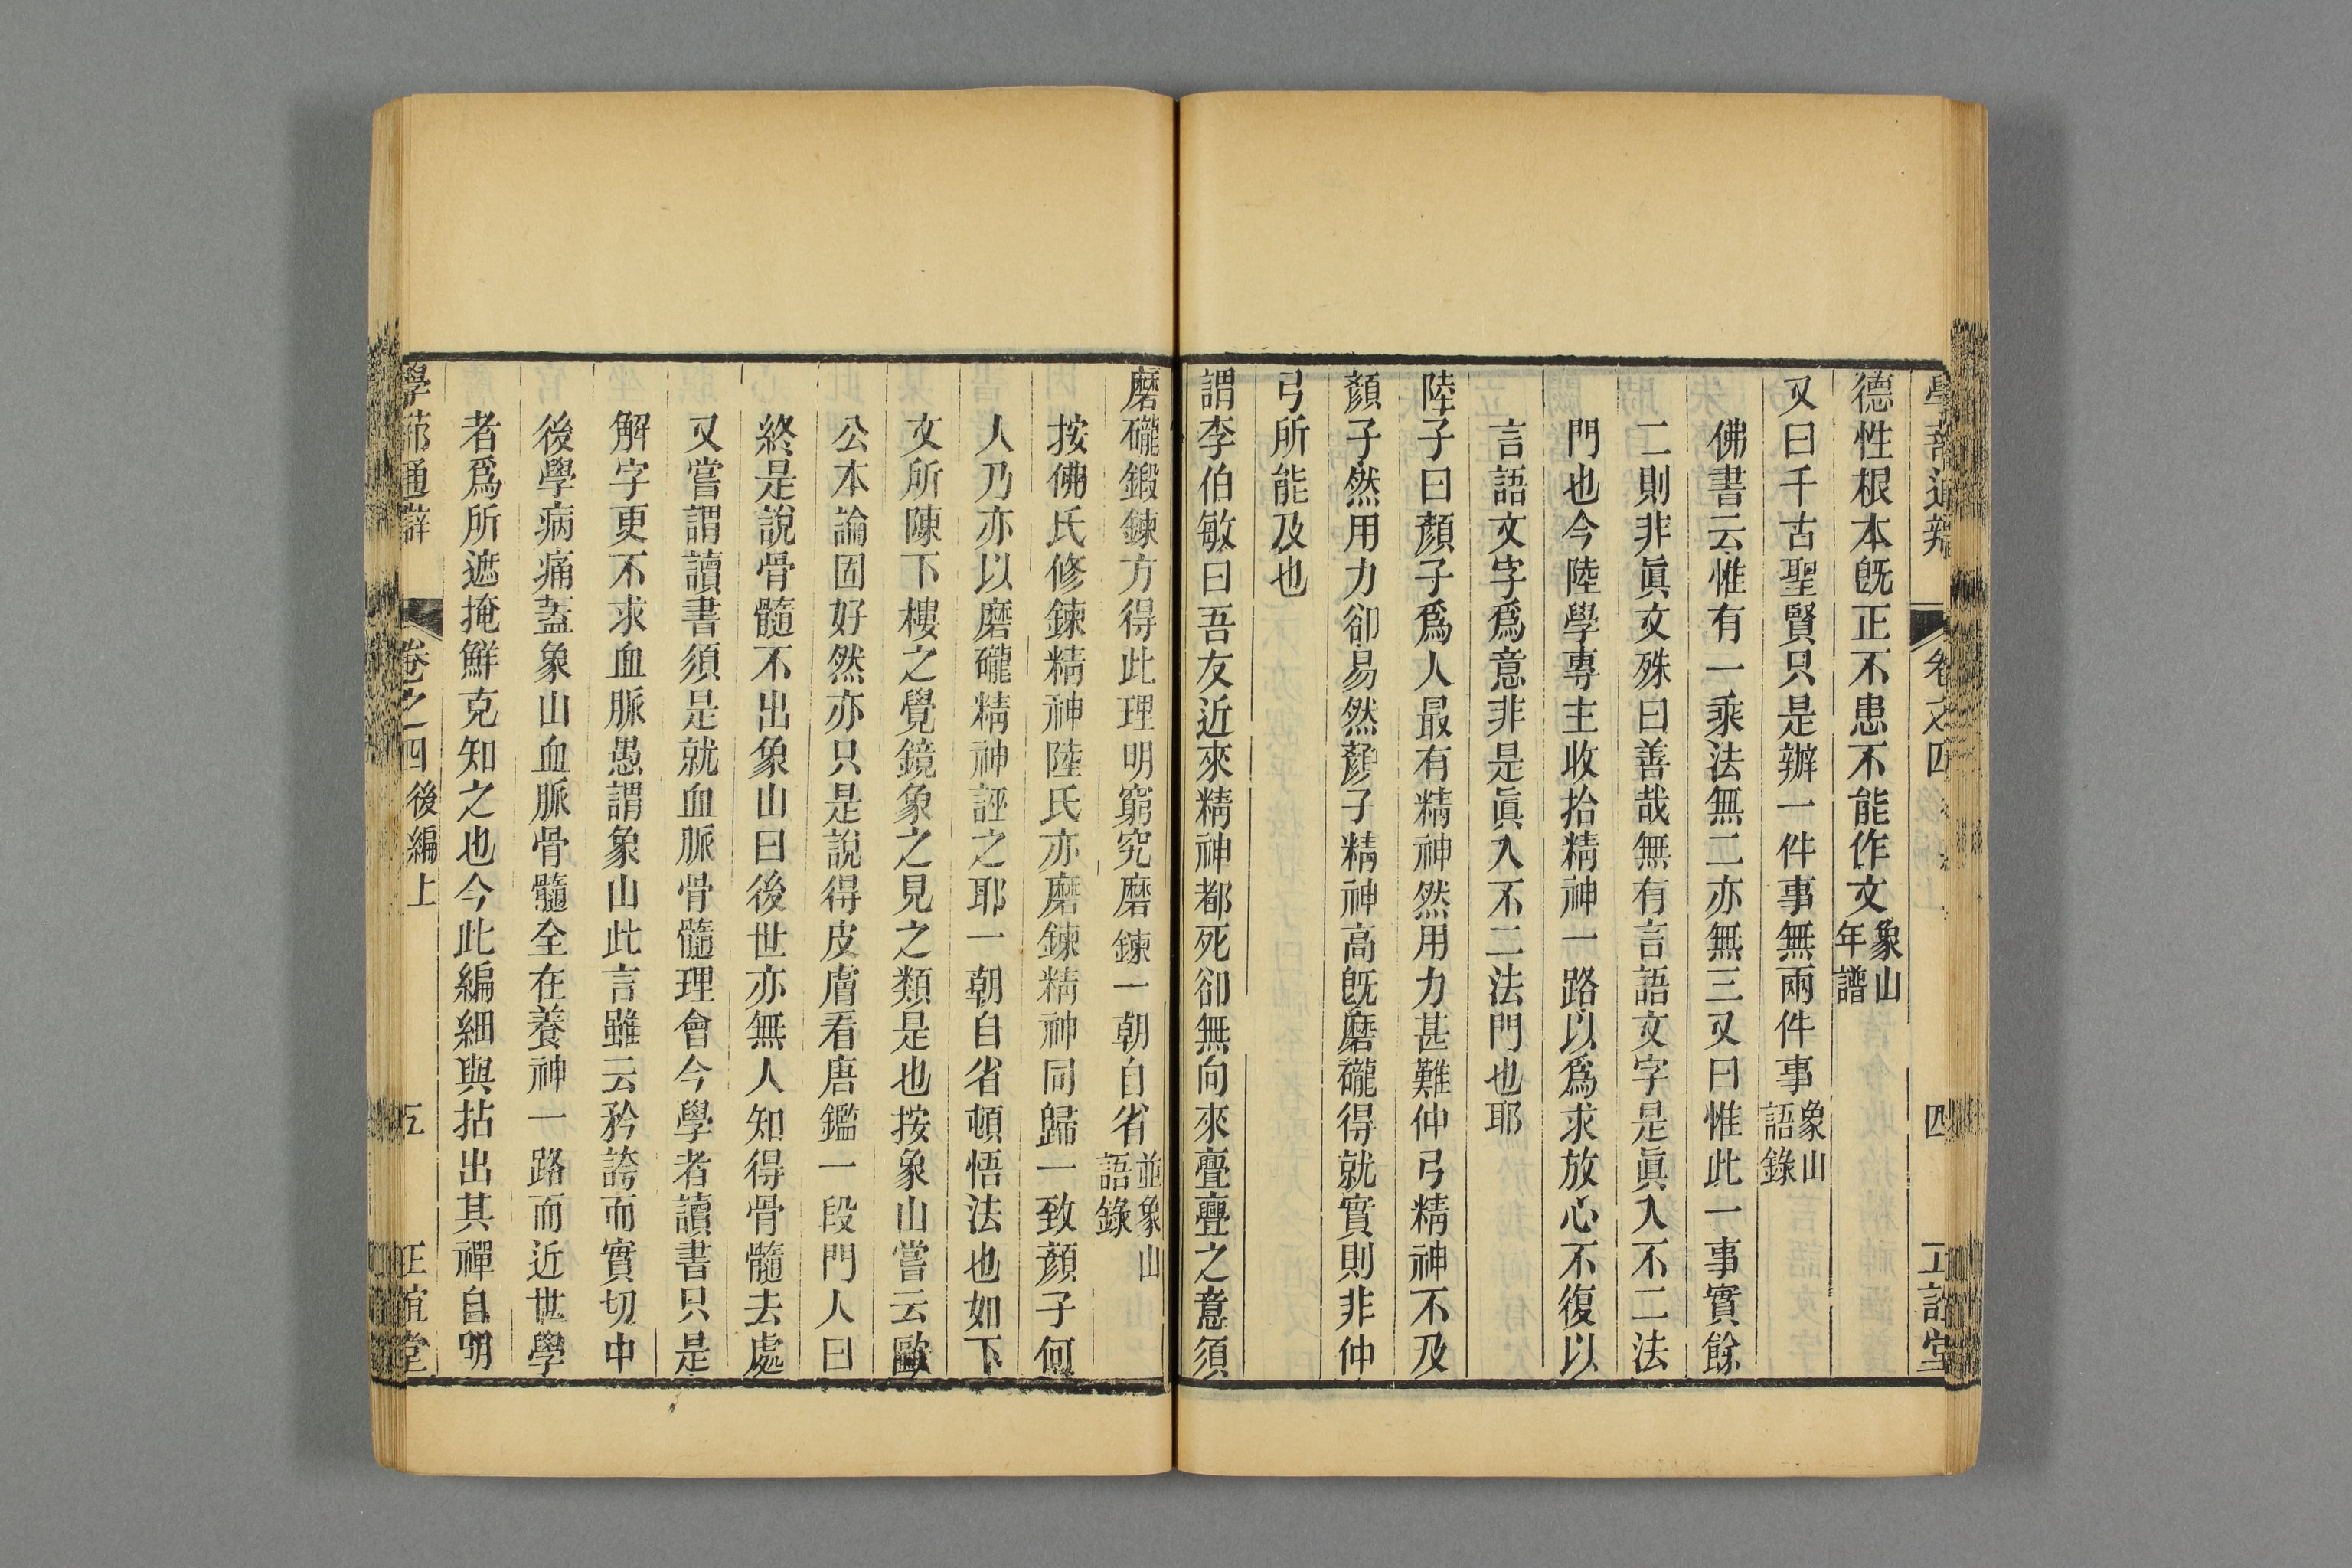 德性根本旣正不患不能作文象山年譜
又曰千古聖賢只是辦一件事無兩件事象山語錄
佛書云惟有一乘法無二亦無三又曰惟此一事實餘
二則非眞文殊曰善哉無有言語文字是眞入不二法
門也今陸學專主收拾精神一路以爲求放心不復以
言語文字爲意非是眞入不二法門也耶
陸子曰顏子爲人最有精神然用力甚難仲弓精神不及
顏子然用力卻易然顏子精神高旣磨礲得就實則非仲
弓所能及也
謂李伯敏曰吾友近來精神都死卻無向來亹亹之意須
磨礲鍛鍊方得此理明窮究磨鍊一朝自省並象山語錄
按佛氏修鍊精神陸氏亦磨鍊精神同歸一致顏子何
人乃亦以磨礲精神誣之耶一朝自省頓悟法也如下
文所陳下樓之覺鏡象之見之類是也按象山嘗云歐
公本論固好然亦只是說得皮膚看唐鑑一段門人曰
終是說骨髓不出象山曰後世亦無人知得骨髓去處
又嘗謂讀書須是就血脈骨髓理會今學者讀書只是
解字更不求血脈愚謂象山此言雖云矜誇而實切中
後學病痛蓋象山血脈骨髓全在養神一路而近世學
者爲所遮掩鮮克知之也今此編細與拈出其禪自明
學蔀通辯 卷之四 後編上 五 正誼堂